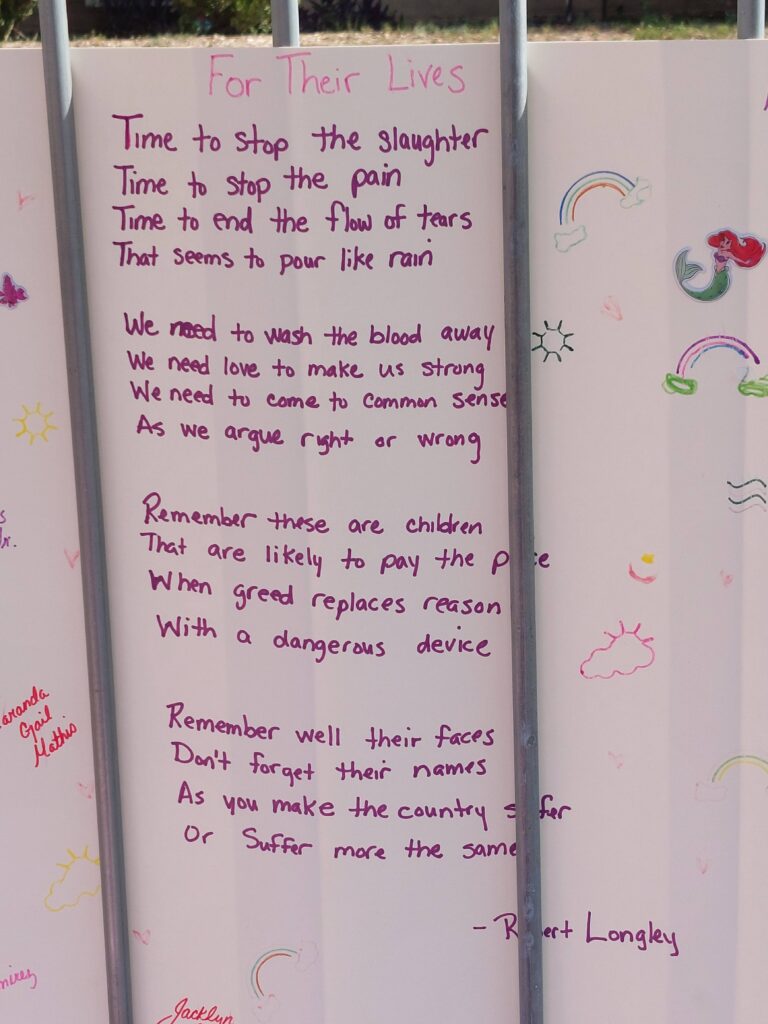 For Their Lives
Time to stop the slaughter
Time to stop the pain
Time to end the flow of tears
That seems to pour like rain
We need to wash the blood away
We need love to make us strong
We need to come to common sense
As we argue right or wrong
Remember these are children
That are likely to pay the
When greed replaces reason
With a dangerous device
Remember well their faces
Don't forget their names
As you make the country
Or Suffer more the same
- Longley
Gail
Mathis
Jacklyn